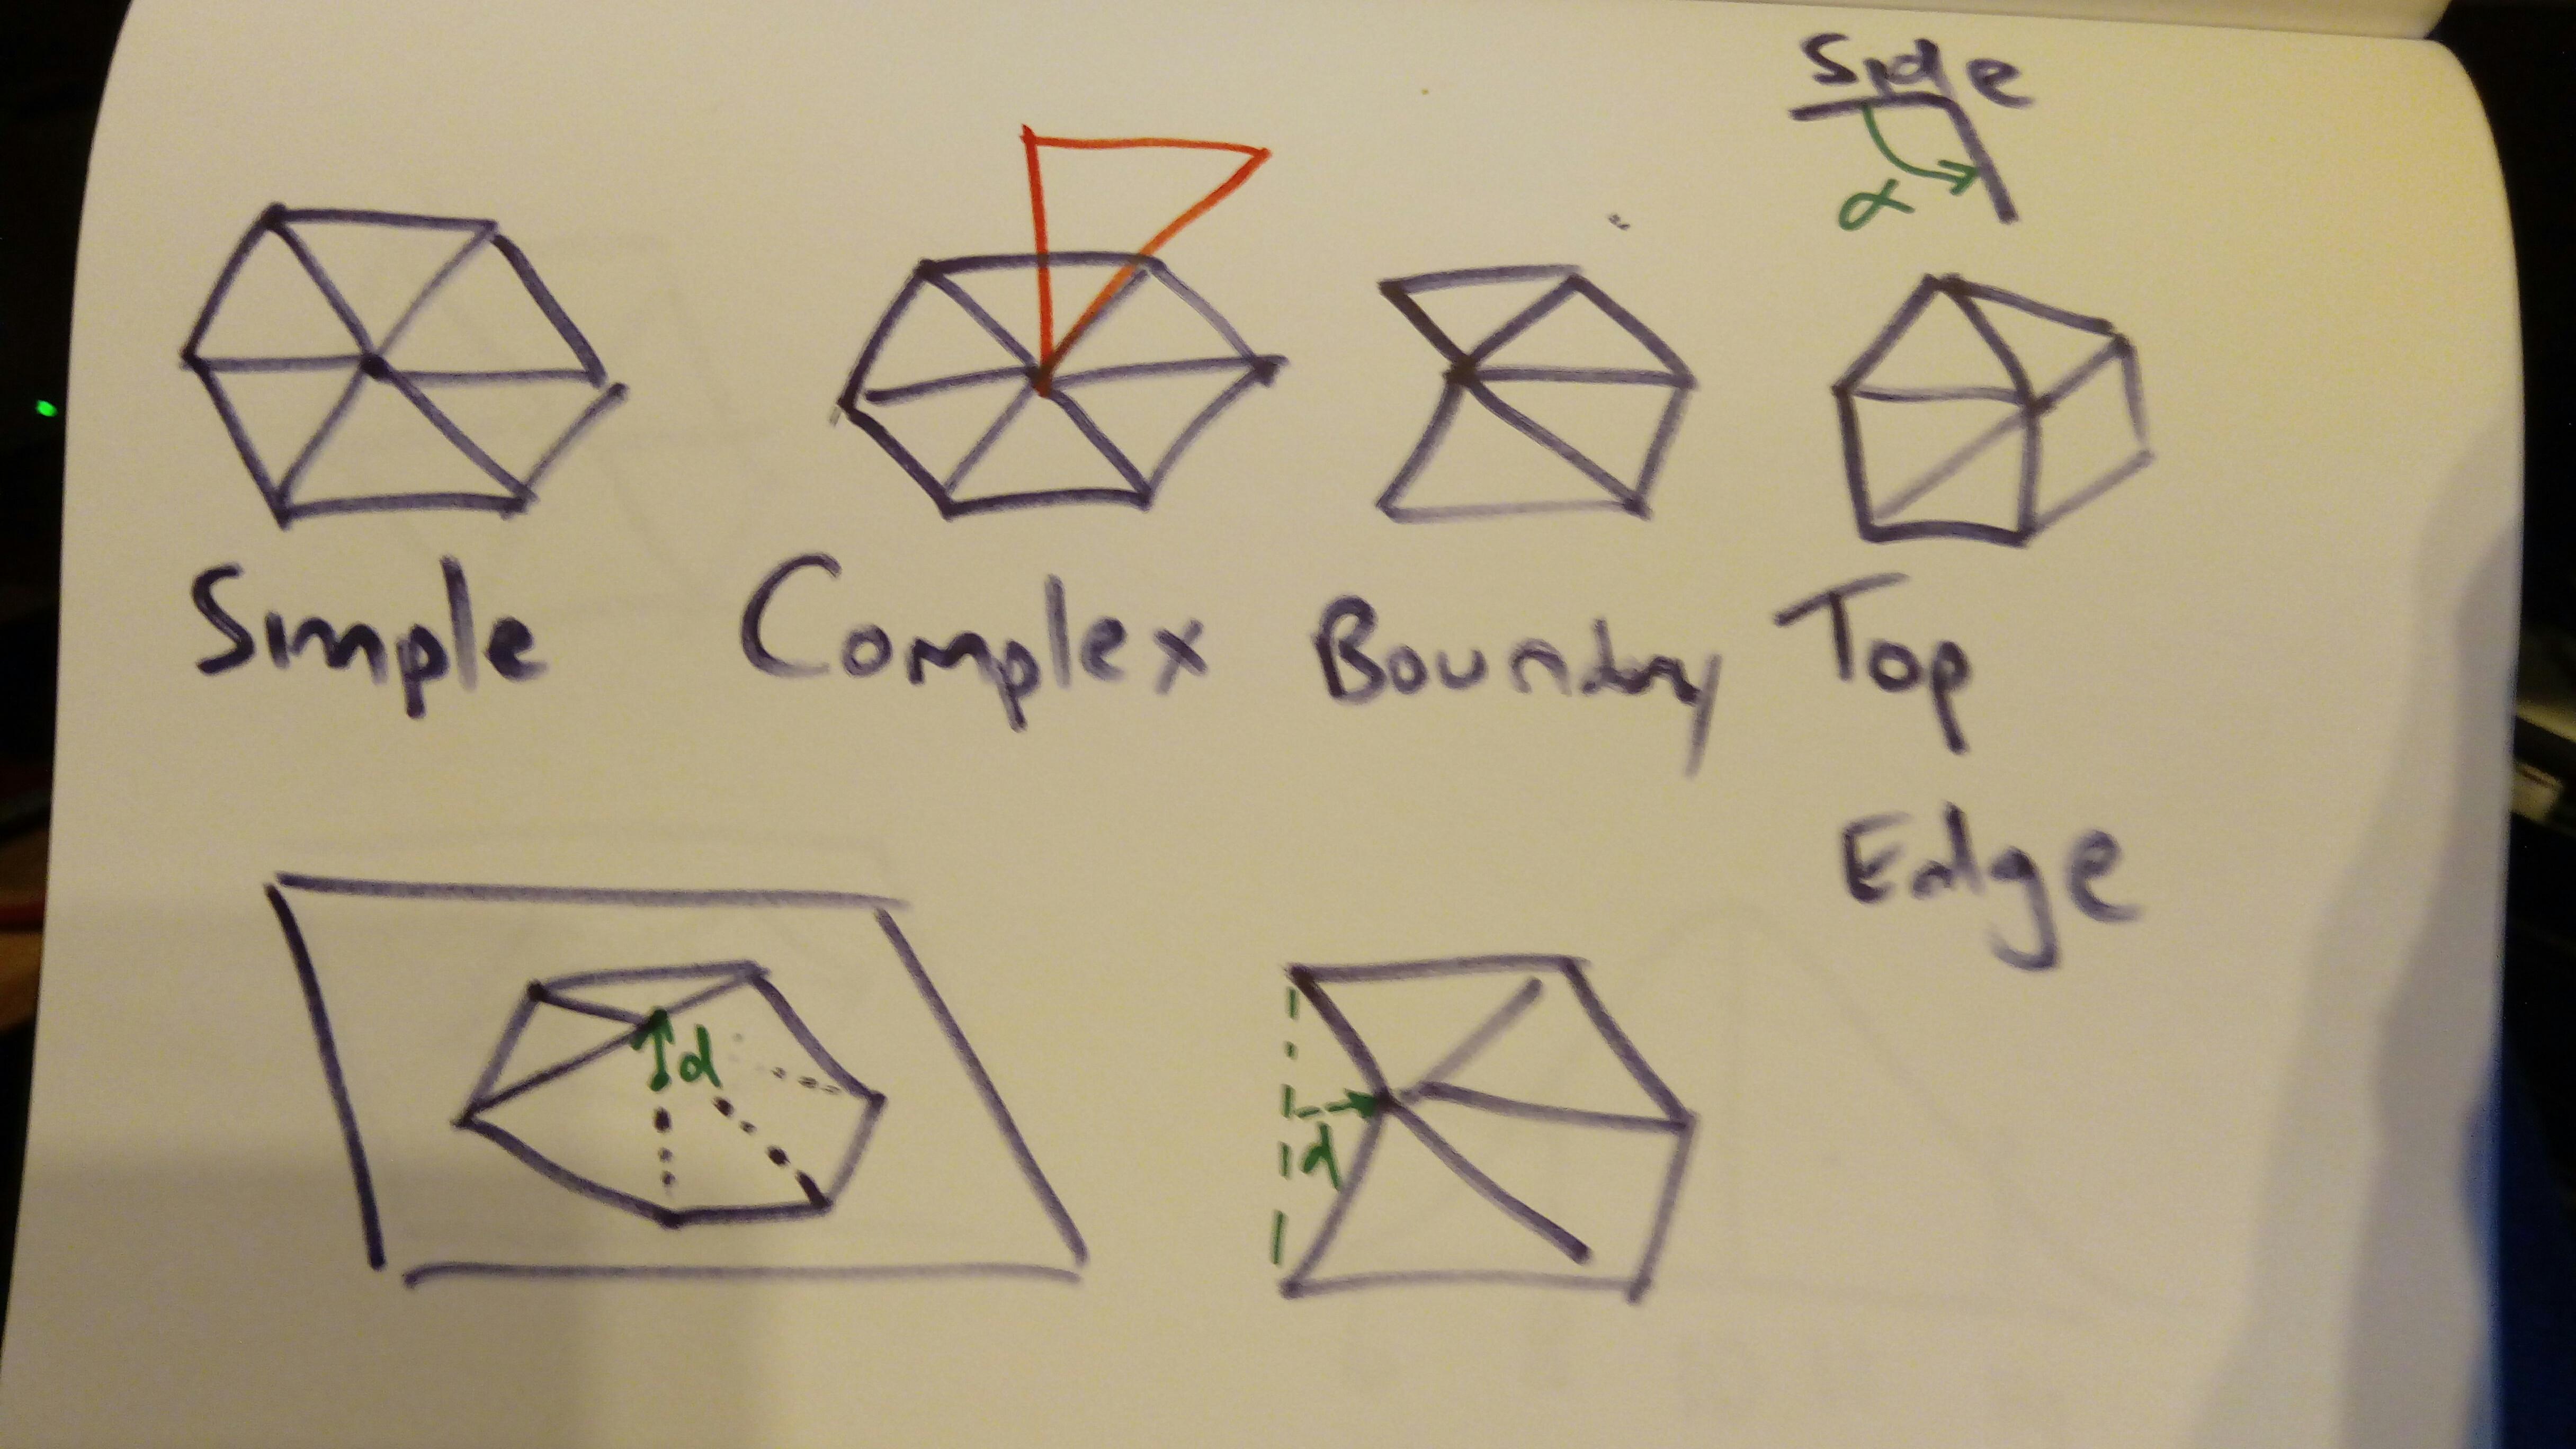 Side
α
Simple
Complex
Boundary
Top
Edge
d
d